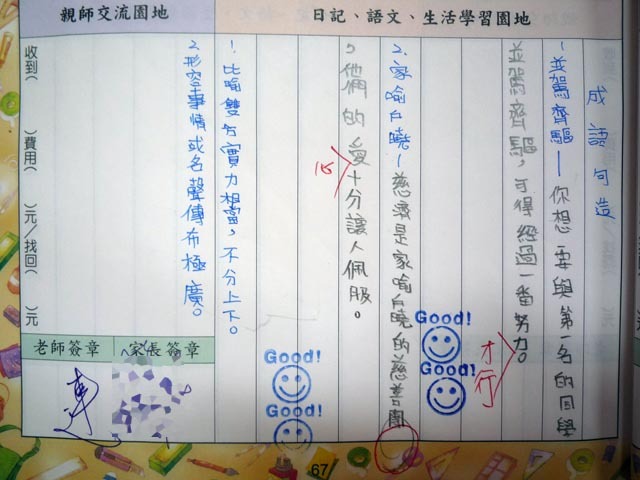 日記、語文、生活學習園地
成語句造
1.並駕齊驅—你想要與第一名的同學
並駕齊驅,可得經過一番努力。
才行
Good!
Good!
2.家喻戶曉—慈濟是家喻戶曉的慈善團
,他們的愛十分讓人佩服。
心
Good!
Good!
1.比喻雙方實力相當,不分上下。
2.形容事情或名聲傳布極廣。
親師交流園地
收到( )費用( )元/找回( )元
家長簽章
老師簽章
67